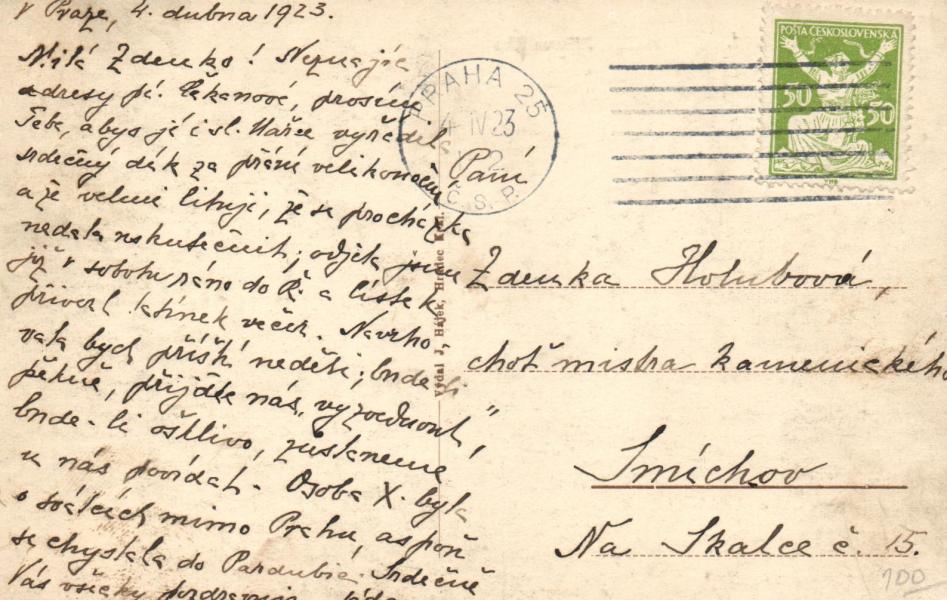 V Praze, 4. dubna 1923.
Milá Zdenko! Neznajíc
adresy pí. Řekanové, prosím
Tebe, abys jí i sl. Mařce vyřídila
srdečný dík za přání velikonoční
a že velmi lituji, že se procházka
nedala uskutečnit; odjela jsem
již v sobotu ráno do Ř. a lístek
přivezl tatínek večer. Navrho-
vala bych příští neděli; bude-li
pěkně, přijďte nás „vyzvednout",
bude-li ošklivo, zůstaneme
u nás povídat. Osoba X. byla
o svátcích mimo Prahu, aspoň
se chystala do Pardubic. Srdečně
Vás všecky
POŠTA ČESKOSLOVENSKÁ
50 50
PRAHA 25
4 IV 23
2
Č.S.P.
Vydal J. Hájek, Hradec Král.
Paní
Zdenka Holubová,
choť mistra kamenického
Smíchov
Na Skalce č. 15.
100